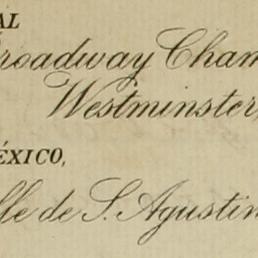 AL
roadway Cham
Westminster,
ÉXICO,
lle de S. Agustin